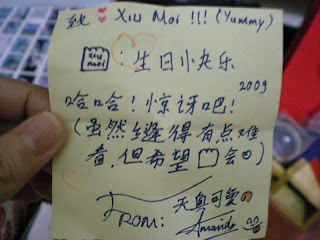 致 ♥ XIU MOI !!! (Yummy)
XIU MOI : 生日快乐
2009
哈哈！惊讶吧！
(虽然缝得有点难
看，但希望 会 )
天真可愛の
FROM: Amanda